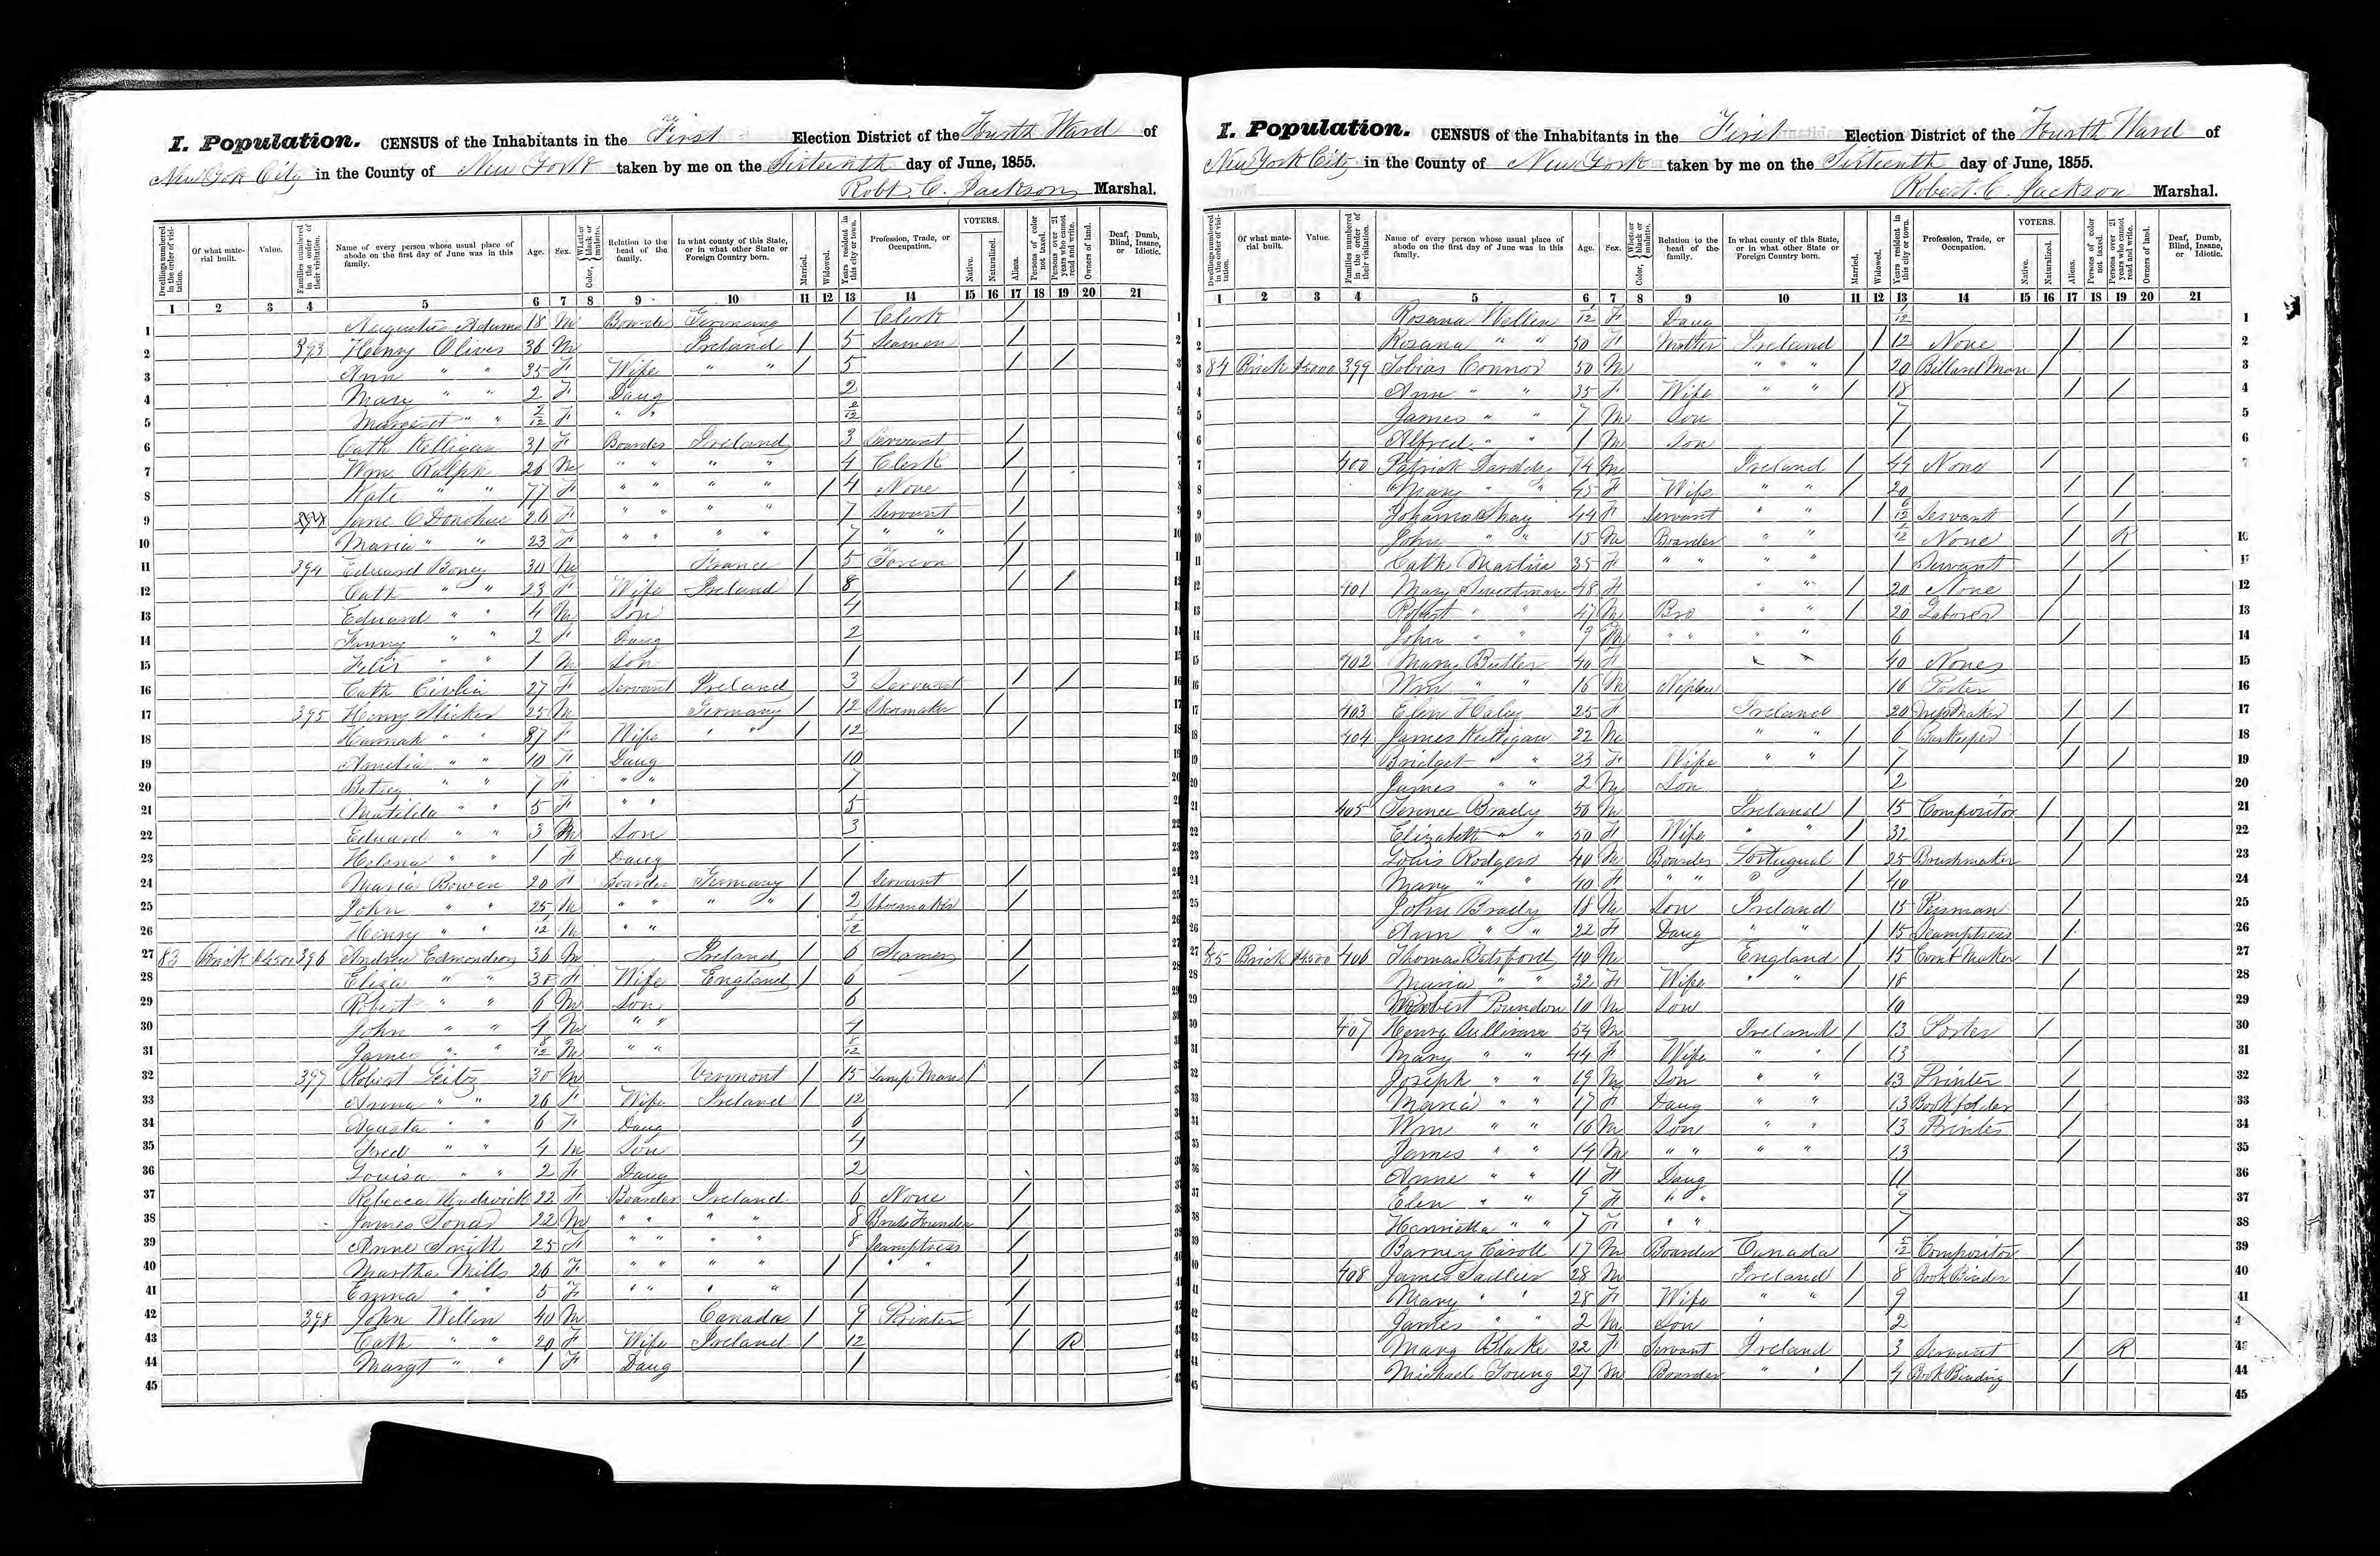 I. Population. CENSUS of the Inhabitants in the First Election District of the Fourth Ward of
New York City in the County of New York taken by me on the Sixteenth day of June, 1855.
Robt. C. Jackson Marshal.
Dwellings numbered in the order of visitation. Of what material built. Value. Families numbered in the order of their visitation. Name of every person whose usual place of abode on the first day of June was in this family. Age. Sex. Color, Whether black or mulatto. Relation to the head of the family. In what county of this State, or in what other State or Foreign Country born. Married. Widowed. Years resident in this city or town. Profession, Trade, or Occupation. VOTERS. Native. Naturalized. Aliens. Persons of color not taxed. Persons over 21 years who cannot read and write. Owners of land. Deaf, Dumb, Blind, Insane, or Idiotic.
1 2 3 4 5 6 7 8 9 10 11 12 13 14 15 16 17 18 19 20 21
1 Augustus Adams 18 M Boarder Germany 1 Clerk /
2 393 Henry Oliver 36 M Ireland / 5 Seaman /
3 Ann " " 35 F Wife " " / 5 / /
4 Mary " " 2 F Daug 2
5 Margeret " " 2/12 F " " 2/12
6 Cath Kelligan 31 F Boarder Ireland 3 Servant /
7 Wm Ralph 26 M " " " " 4 Clerk /
8 Kate " " 77 F " " " " / 4 None /
9 Jane O Donohue 26 F " " " " 7 Servant /
10 Maria " " 23 F " " " " 7 " " /
11 394 Edward Boney 30 M France / 5 /
12 Cath " " 23 F Wife Ireland / 8 / /
13 Edward " " 4 M Son 4
14 Fanny " " 2 F Daug 2
15 Felix " " 1 M Son 1
16 Cath 27 F Servant Ireland 3 Servant / /
17 395 Henry Slicker 25 M Germany / 12 Shoemaker /
18 Hannah " " 37 F Wife " " / 12 /
19 Amelia " " 10 F Daug 10
20 Betsy " " 7 F " " 7
21 Matilda " " 5 F " " 5
22 Edward " " 3 M Son 3
23 Helena " " 1 F Daug 1
24 Maria Bowen 20 F Boarder Germany / 1 Servant /
25 John " " 25 M " " " " / 2 Shoemaker /
26 Henry " " 1/12 M " " 1/12
27 83 Brick $4500 396 Andrew Edmondson 36 M Ireland / 6 Seamen /
28 Eliza " " 38 F Wife England / 6 /
29 Robert " " 6 M Son 6
30 John " " 4 M " " 4
31 James " " 8/12 M " " 8/12
32 397 Robert Leitz 30 M Vermont / 15 Lamp Man / /
33 Anna " " 26 F Wife Ireland / 12 /
34 Agusta " " 6 F Daug 6
35 Fred " " 4 M Son 4
36 Louisa " " 2 F Daug 2
37 Rebecca 22 F Boarder Ireland 6 None /
38 James 22 M " " " " 8 Founder /
39 Anne Smith 25 F " " " " 8 Seamptress /
40 Martha Mills 26 F " " " " / 1 " " /
41 Emma " " 5 F " " " " 1 /
42 398 John Wellen 40 M Canada / 9 Printer /
43 Cath " " 20 F Wife Ireland / 12 / R
44 Margt " " 1 F Daug 1
45
I. Population. CENSUS of the Inhabitants in the First Election District of the Fourth Ward of
New York City in the County of New York taken by me on the Sixteenth day of June, 1855.
Robert. C. Jackson Marshal.
Dwellings numbered in the order of visitation. Of what material built. Value. Families numbered in the order of their visitation. Name of every person whose usual place of abode on the first day of June was in this family. Age. Sex. Color, Whether black or mulatto. Relation to the head of the family. In what county of this State, or in what other State or Foreign Country born. Married. Widowed. Years resident in this city or town. Profession, Trade, or Occupation. VOTERS. Native. Naturalized. Aliens. Persons of color not taxed. Persons over 21 years who cannot read and write. Owners of land. Deaf, Dumb, Blind, Insane, or Idiotic.
1 2 3 4 5 6 7 8 9 10 11 12 13 14 15 16 17 18 19 20 21
1 Rosana Wellen 1/12 F Daug 1/12
2 Rosana " " 50 F Mother Ireland / 12 None / /
3 84 Brick $5000 399 Tobias Connor 50 M " " / 20 Billard Man /
4 Ann " " 35 F Wife " " / 18 / /
5 James " " 7 M Son 7
6 Alfred " " 1 M Son 1
7 400 Patrick 74 M Ireland / 44 None /
8 Mary " " 45 F Wife " " / 20 / /
9 Johanna Shay 44 F Servant " " / 6/12 Servant / /
10 John " " 15 M Boarder " " 1/12 None / R
11 Cath Martin 35 F " " " " 1 Servant / /
12 401 Mary Sweetman 48 F " " / 20 None /
13 Robert " " 47 M Bro " " / 20 Laborer /
14 John " " 7 M " " " " 6 /
15 402 Mary Butler 40 F " " 40 None
16 Wm " " 16 M Nephew 16 Porter
17 403 Elen Haley 25 F Ireland 20 / /
18 404 James Kulligan 22 M " " / 6 Barkeeper /
19 Bridget " " 23 F Wife " " / 7 / /
20 James " " 2 M Son 2
21 405 Terence Brady 56 M Ireland / 15 Compositor /
22 Elizabeth " " 50 F Wife " " / 32 / /
23 Louis Rodgers 40 M Boarder Portugual / 25 Brushmaker /
24 Mary " " 40 F " " / 40
25 John Brady 18 M Son Ireland 15 /
26 Ann " " 22 F Daug " " / 15 Seamptress /
27 85 Brick $4500 406 Thomas Botsford 40 M England / 15 Comb Maker /
28 Maria " " 32 F Wife " " / 18 /
29 Robert Poundon 10 M Son 10
30 407 Henry Cullinane 54 M Ireland / 13 Porter /
31 Mary " " 44 F Wife " " / 13 /
32 Joseph " " 19 M Son " " 13 Printer /
33 Maria " " 17 F Daug " " 13 Bookfolder /
34 Wm " " 16 M Son " " 13 Printer /
35 James " " 14 M " " " " 13 /
36 Anne " " 11 F Daug 11
37 Elen " " 9 F " " 9
38 Henrietta " " 7 F " " 7
39 Barney Caroll 17 M Boarder Canada 5/12 Compositor /
40 408 James Sadlier 28 M Ireland / 8 Book Binder /
41 Mary " " 28 F Wife " " / 9 /
42 James " " 2 M Son 2
43 Mary Blake 22 F Servant Ireland 3 Servant / R
44 Michael Young 27 M Boarder " " / 4 Book Binding /
45